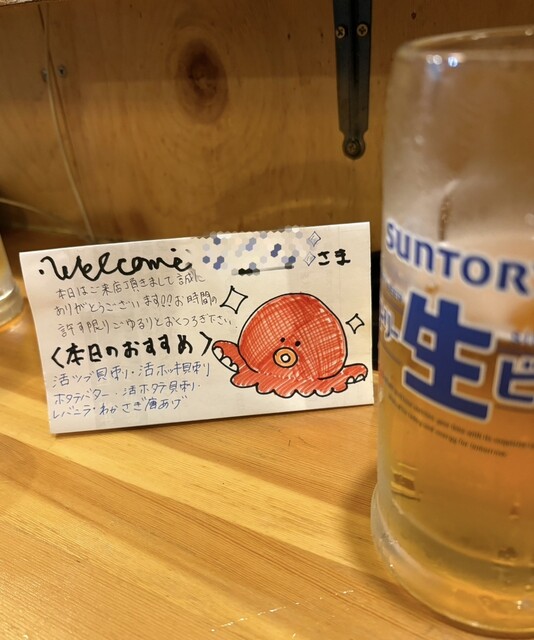 Welcome さま
本日はご来店頂きまして誠に
ありがとうございます!!お時間の
許す限りごゆるりとおくつろぎください。
〈本日のおすすめ〉
活ツブ貝刺し・活ホッキ貝刺し
ホタテバター・活ホタテ貝刺し・
レバニラ・わかさぎ唐あげ
SUNTOR
生ビ